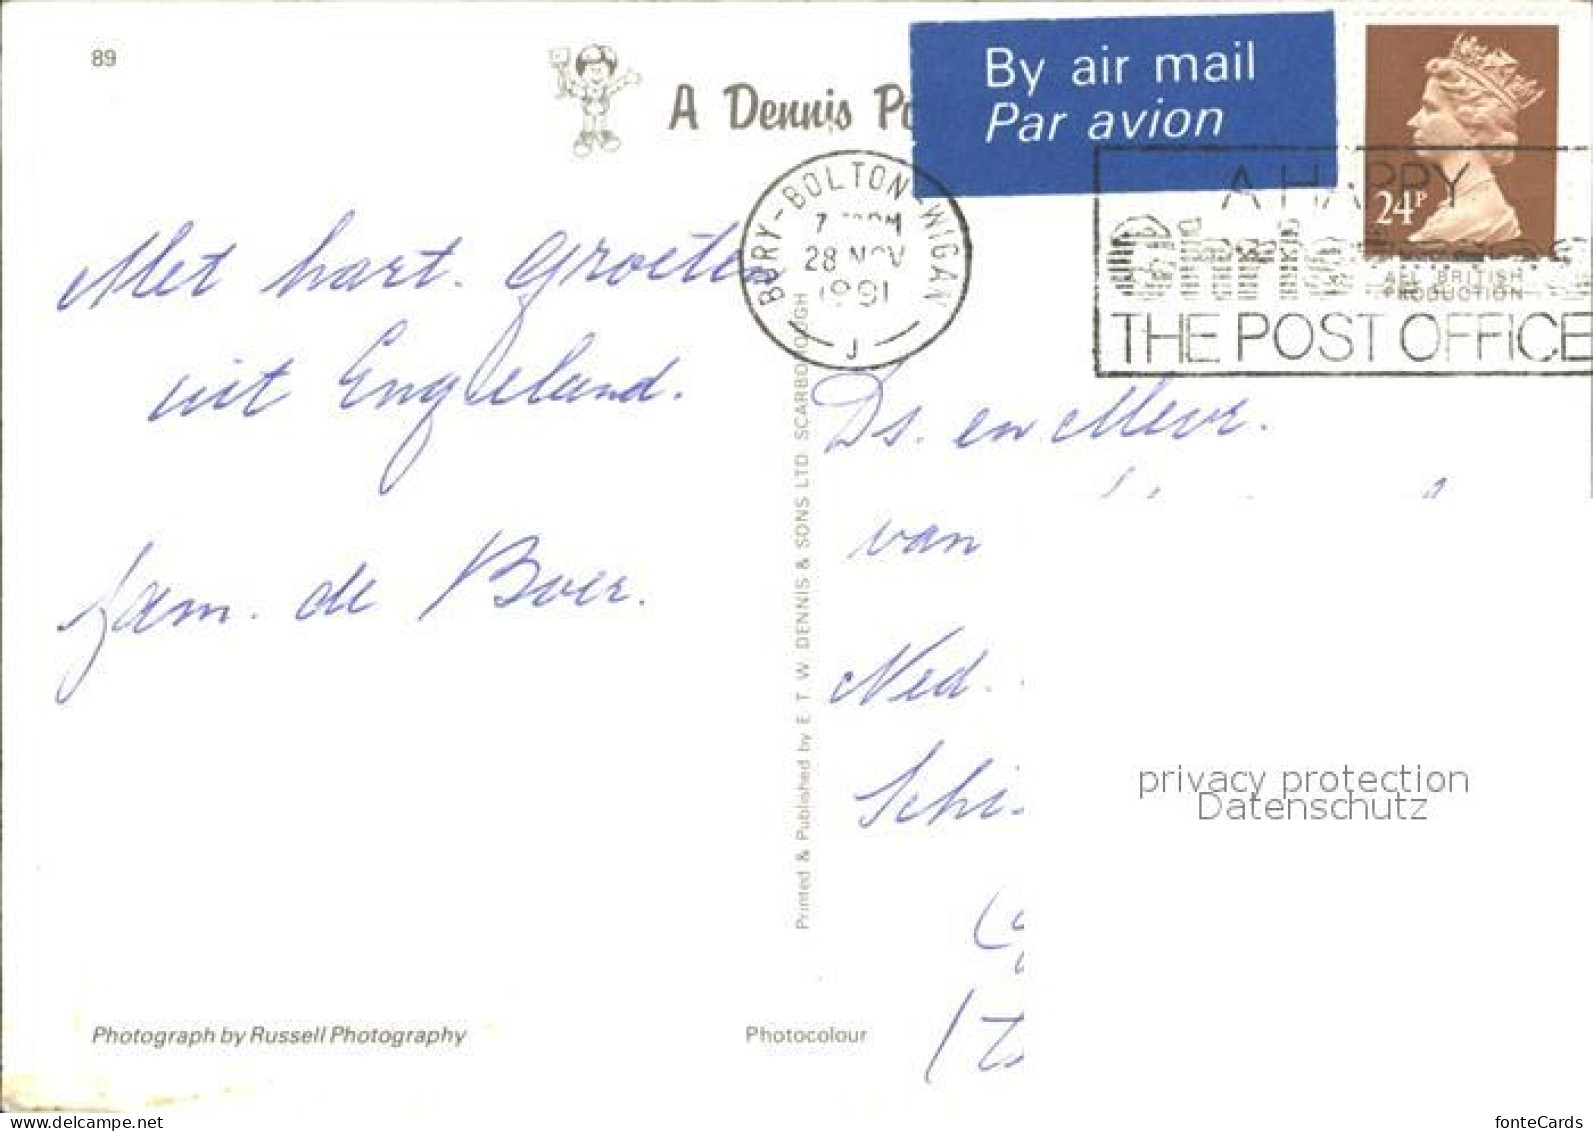 89
A Dennis
By air mail
Par avion
24P
BURY-BOLTON-WIGAN
28 NOV
1991
J
A HAPPY
THE POST OFFICE
ALL BRITISH
PRODUCTION
Met hart. groeten
uit Engeland.
fam. de Boer.
Printed & Published by E T W DENNIS & SONS LTD SCARBOROUGH
Ds. en Mevr.
van
Ned.
Schi
privacy protection
Datenschutz
Photograph by Russell Photography
Photocolour
www.delcampe.net
fonteCards